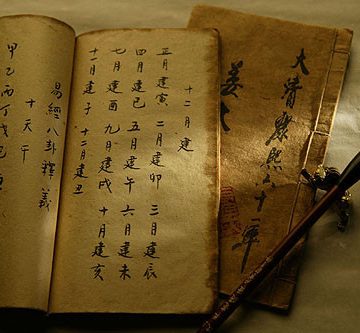 十二月建
正月建寅 二月建卯 三月建辰
四月建巳 五月建午 六月建未
七月建酉 九月建戌 十月建亥
十一月建子 十二月建丑
易經八卦釋義
十天午
甲乙丙丁戊己
大清康熙六十一年
姜